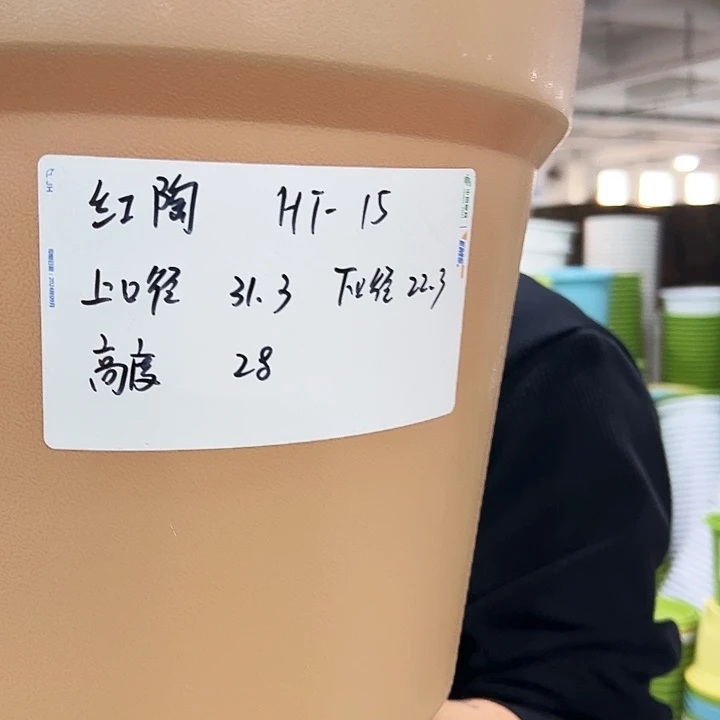 红陶 HT-15
上口径 31.3 下口径 22.3
高度 28